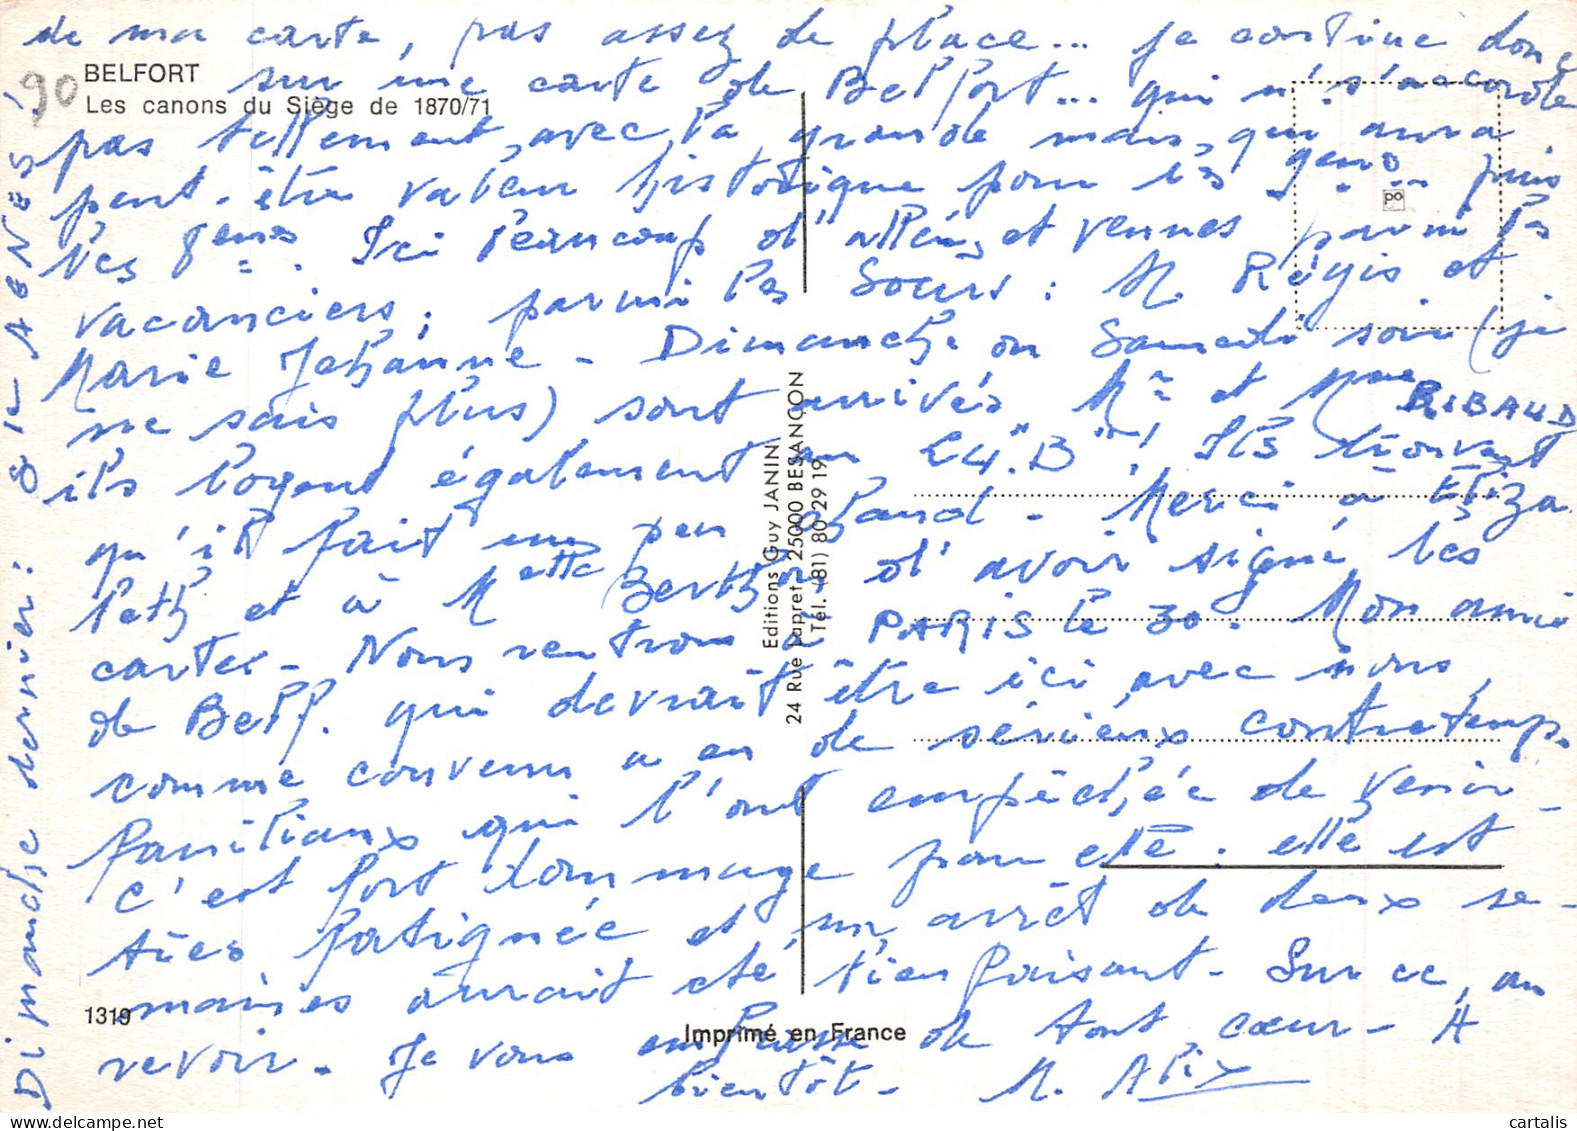 de ma carte, pas assez de place... je continue donc
BELFORT
sur une carte de Belfort... qui n's'accorde
90
Les canons du Siège de 1870/71
pas tellement avec la grande mais, qui aura
peut-être valeur historique pour les gens puis
po
les Ici beaucoup d'allées et venues parmi les
vacanciers; parmi les Soeurs: M. Régis et
Marie Jehanne - Dimanche ou Samedi soir (je
ne sais plus) sont arrivés Mr et Mme RIBAUD
ils logent également au 24 "B"! Ils trouvent
qu'il fait un peu chaud - Merci à Eliza
beth et à Melle Berthe d'avoir signé les
cartes - Nous rentrons à PARIS le 30. Mon amie
de Belf. qui devrait être ici avec nous,
comme convenu a eu de sérieux contretemps
familiaux qui l'ont empêchée de venir -
c'est fort dommage pour elle. elle est
très fatiguée et un arrêt de deux se-
maines aurait été bienfaisant - Sur ce, au
1319
revoir - Je vous embrasse de tout cœur - A
Imprimé en France
bientôt - M. Alix
Editions Guy JANIN
24 Rue Lapret, 25000 BESANÇON
Tél. (81) 80 29 19
Dimanche dernier: 81e AGNES!
cartalis